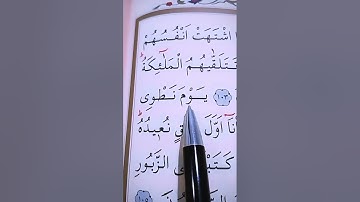 اشْتَهَتْ اَنْفُسُهُمْ
تَتَلَقّٰيهُمُ الْمَلٰٓئِكَةُ
﴿١٠٣﴾ يَوْمَ نَطْوِي
اَوَّلَ نُع۪يدُهُ
الزَّبُورِ